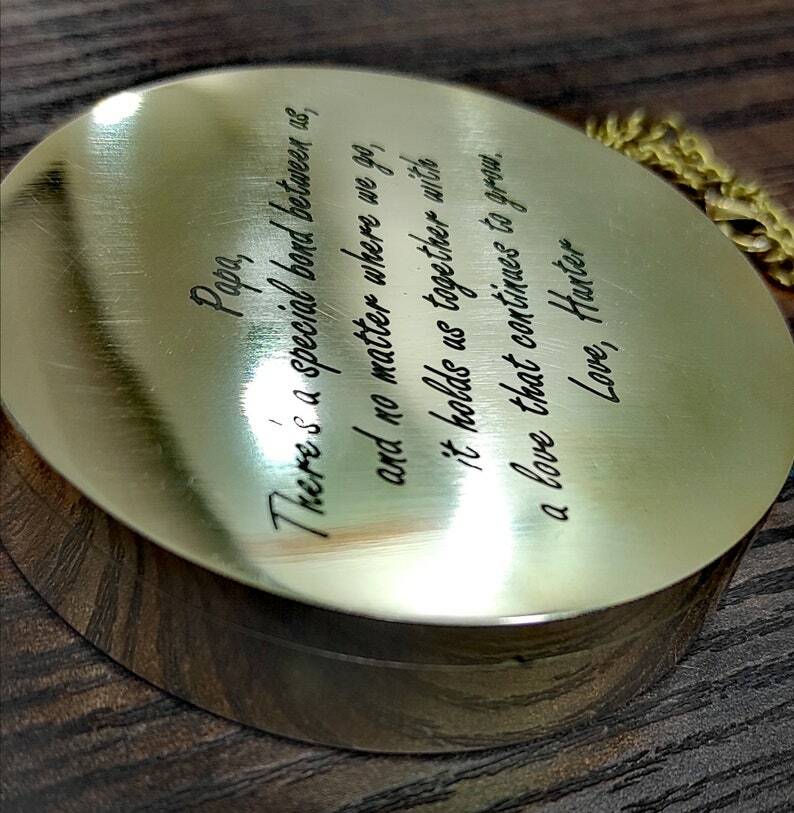 Papa,
There's a special bond between us,
and no matter where we go,
it holds us together with
a love that continues to grow.
Love, Hunter